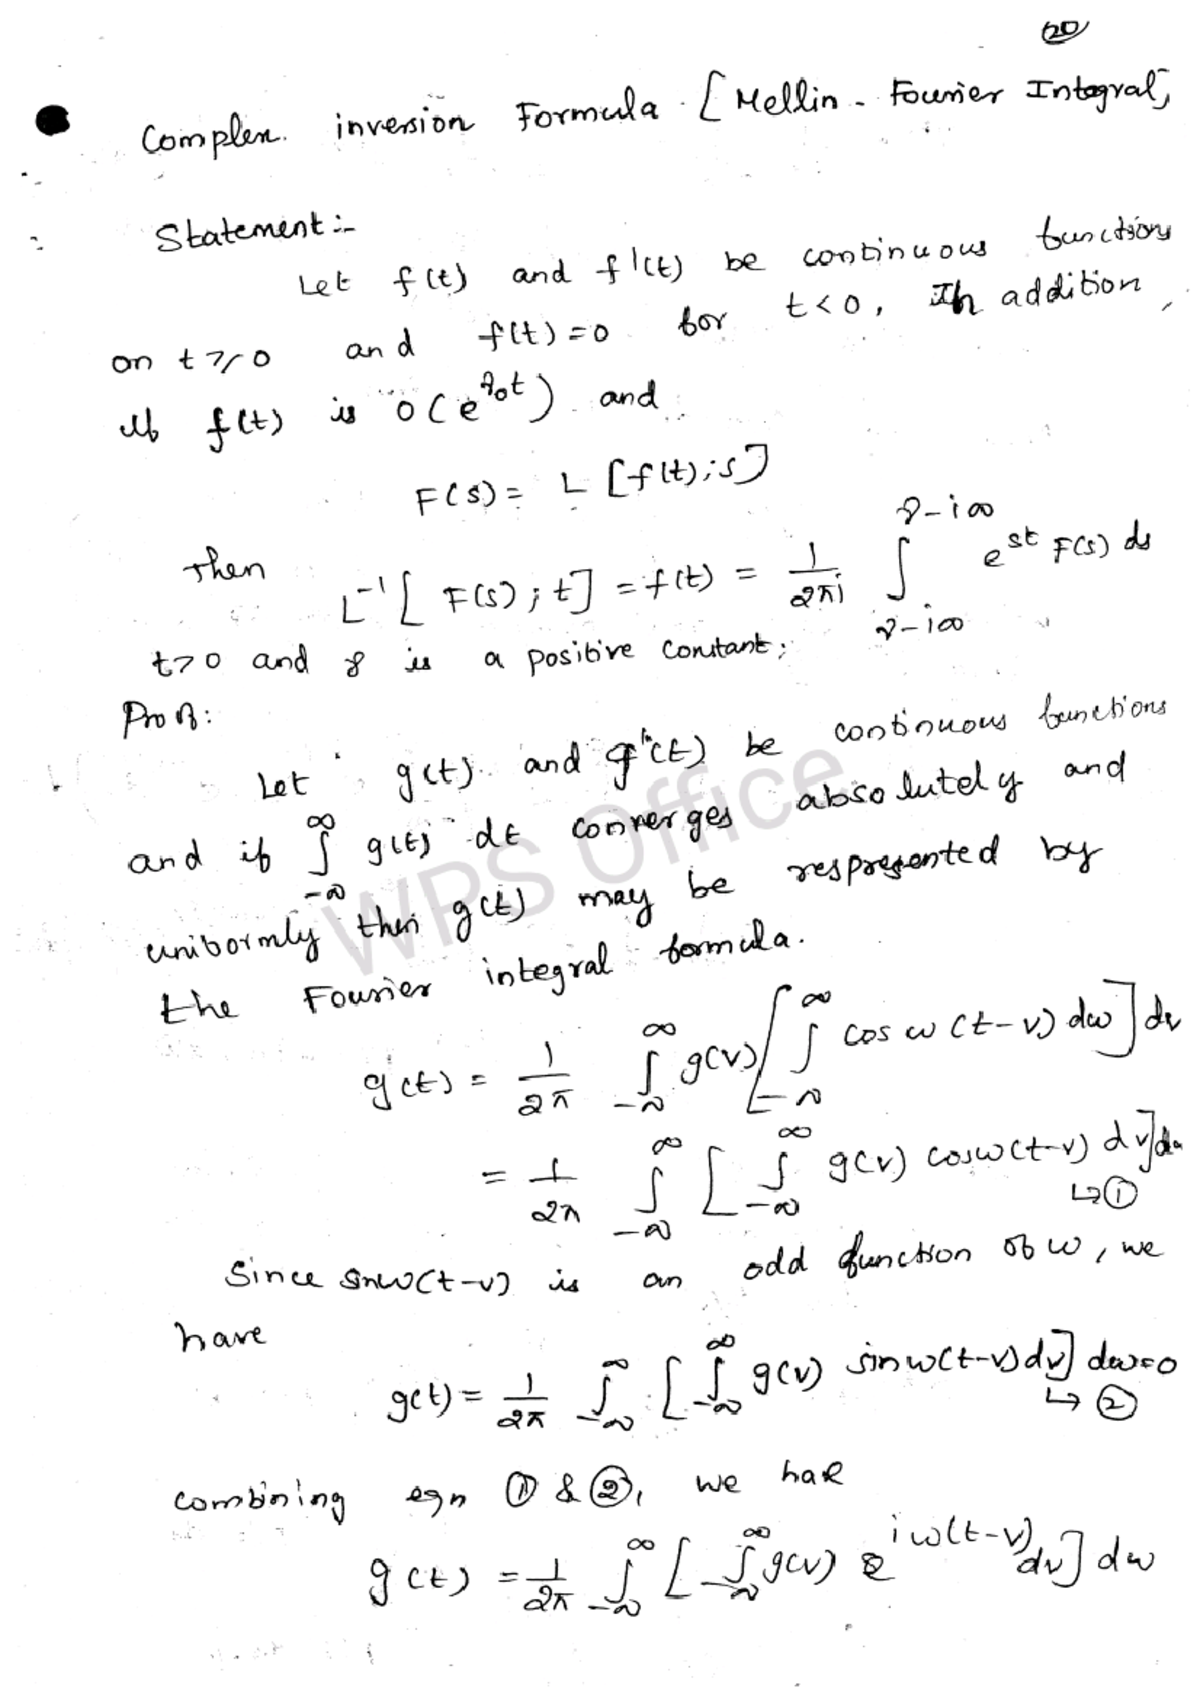 20
Complex. inversion Formula. [Mellin - Fourier Integral]
Statement :-
Let f(t) and f'(t) be continuous functions
on t ≥ 0 and f(t)=0 for t<0, In addition,
if f(t) is O(e^γ₀t) and
F(s) = L [f(t);s]
Then
L⁻¹[F(s);t] = f(t) = 1/2πi ∫_γ-i∞^γ-i∞ e^st F(s) ds
t>0 and γ is a positive constant;
Proof:
Let g(t) and g'(t) be continuous functions
and if ∫_-∞^∞ g(t) dt converges absolutely and
uniformly then g(t) may be respresented by
the Fourier integral formula.
g(t) = 1/2π ∫_-∞^∞ g(v) [∫_-∞^∞ cos ω (t-v) dω] dv
= 1/2π ∫_-∞^∞ [∫_-∞^∞ g(v) cosω(t-v) dv] dω
↳ ①
Since sinω(t-v) is an odd function of ω, we
have
g(t) = 1/2π ∫_-∞^∞ [∫_-∞^∞ g(v) sinω(t-v)dv] dω=0
↳ ②
combining eqn ① & ②, we have
g(t) = 1/2π ∫_-∞^∞ [∫_-∞^∞ g(v) e^iω(t-v) dv] dω
WPS Office